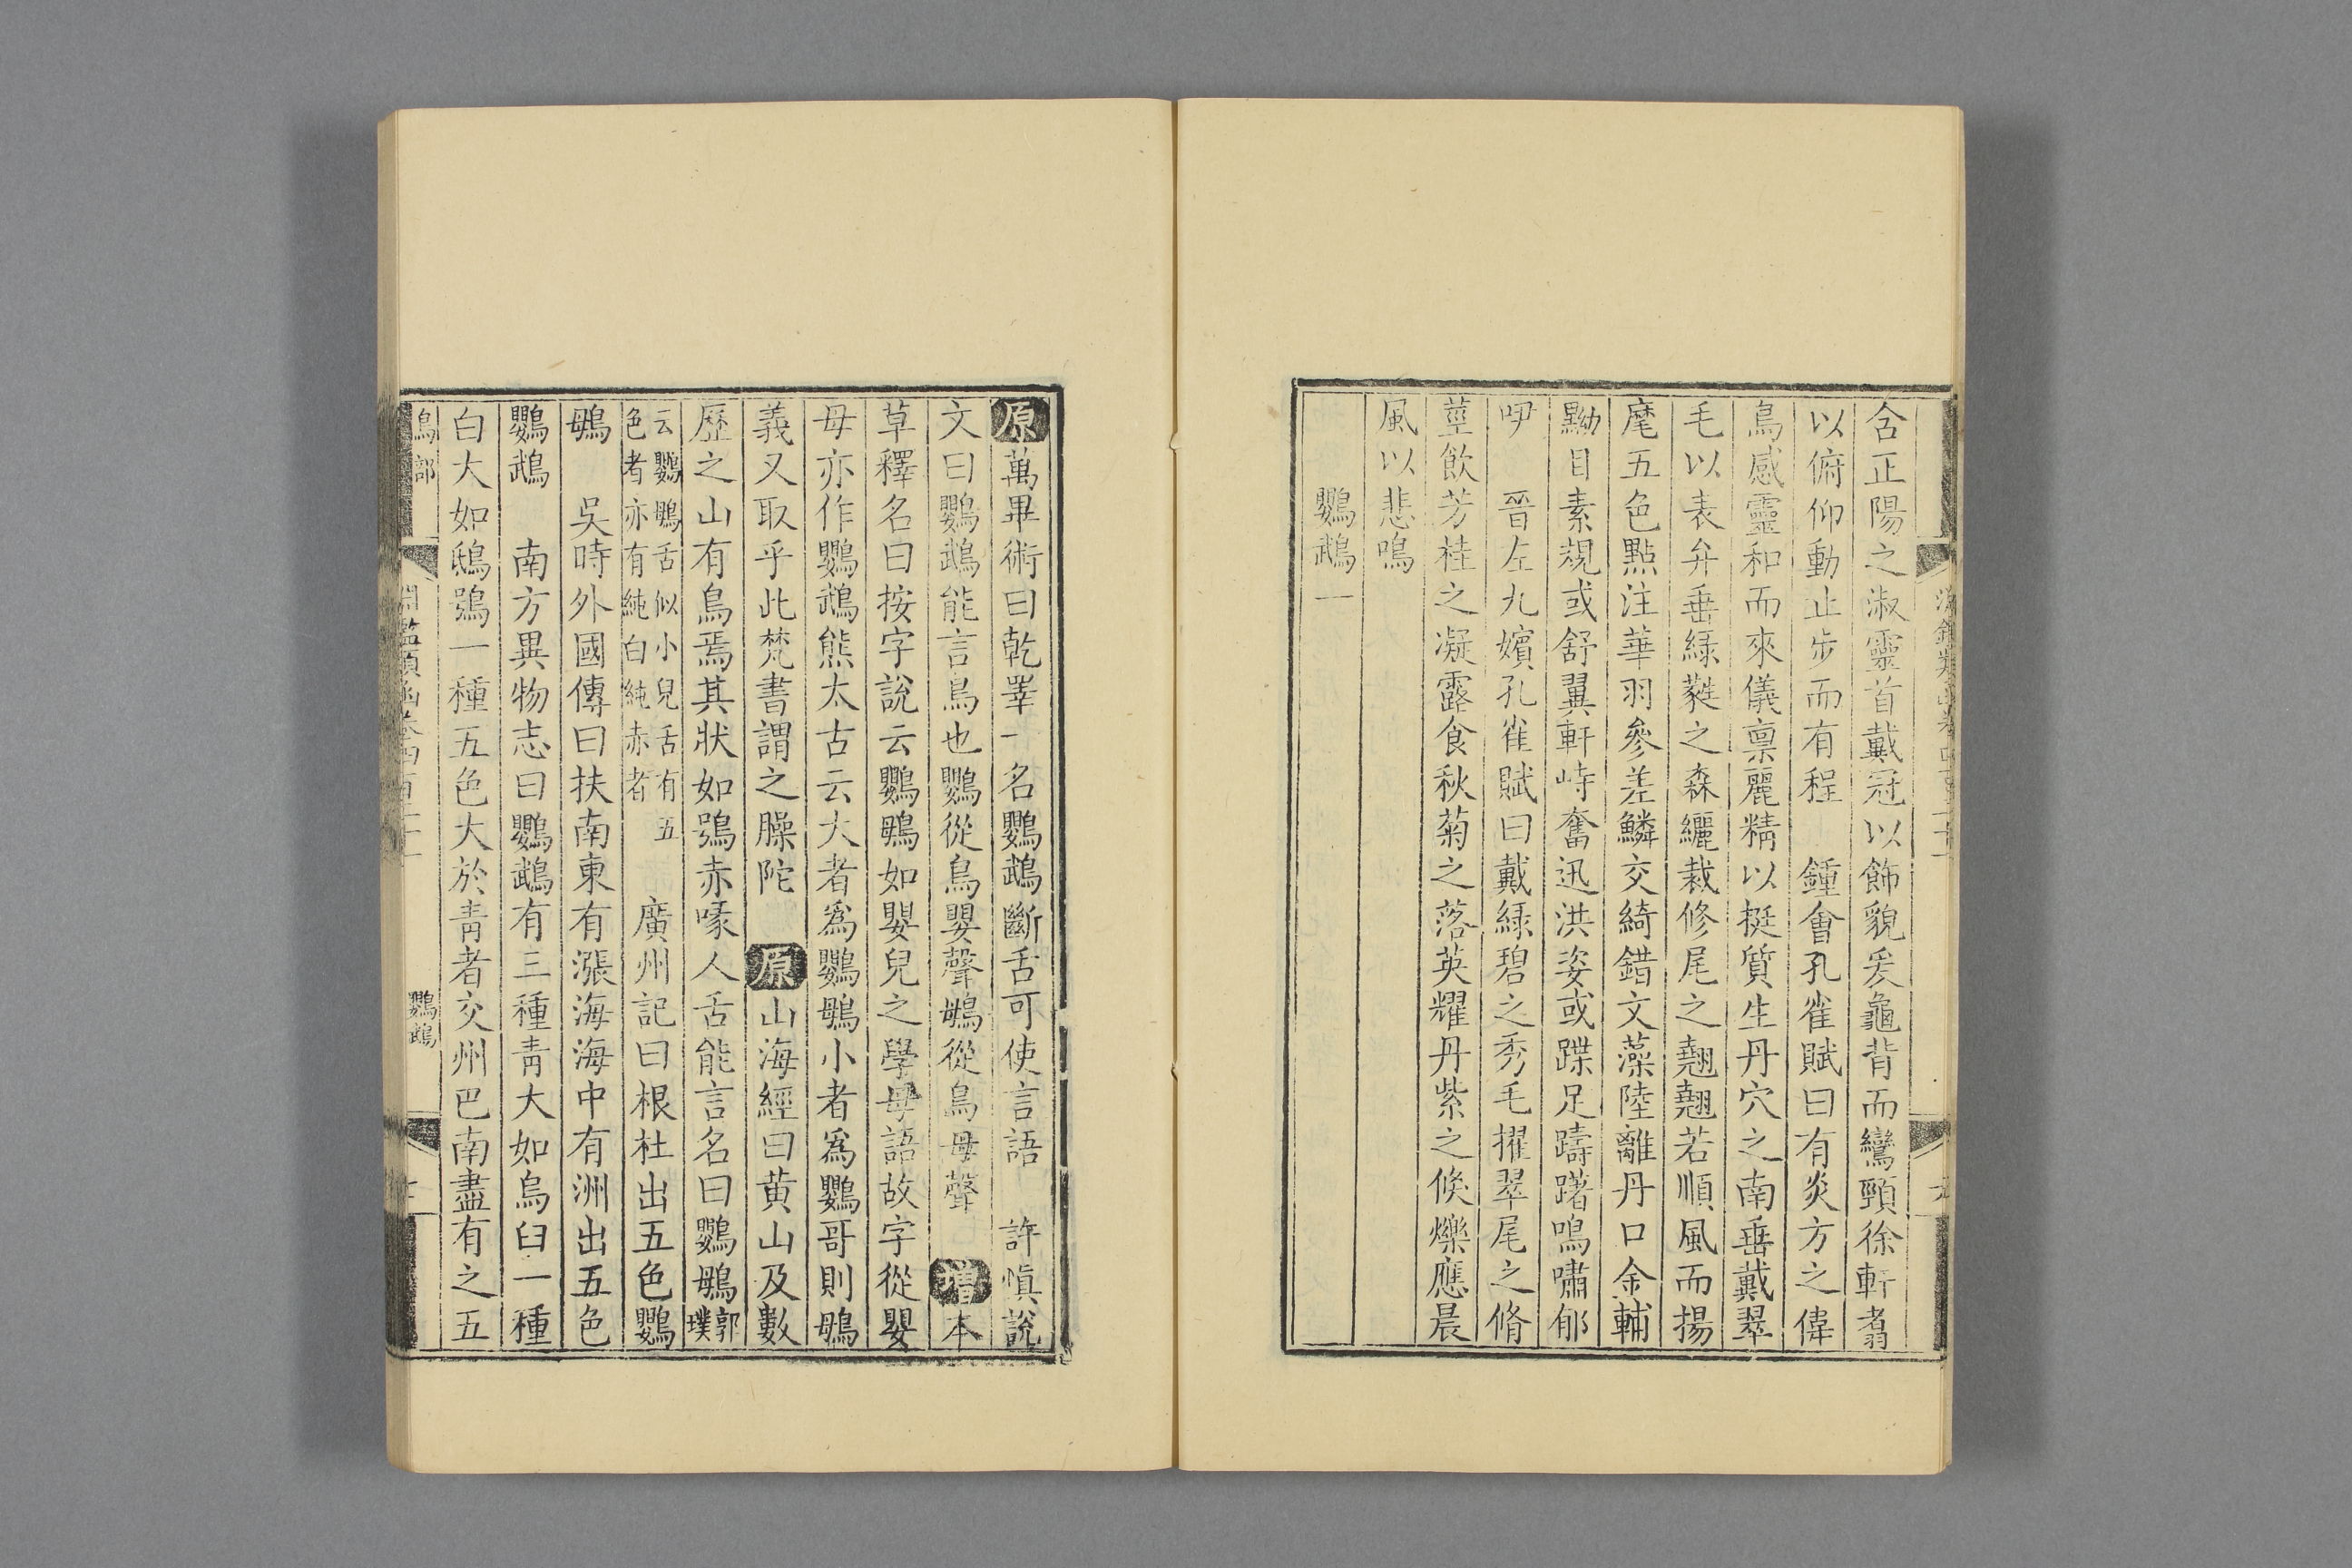 含正陽之淑靈首戴冠以飾貌爰龜背而鸞頸徐軒翥
以俯仰動止步而有程　鍾會孔雀賦曰有炎方之偉
鳥感靈和而來儀禀麗精以挺質生丹穴之南垂戴翠
毛以表弁垂綠蕤之森纚裁修尾之翹翹若順風而揚
麾五色點注華羽參差鱗交綺錯文藻陸離丹口金輔
黝目素規或舒翼軒峙奮迅洪姿或蹀足躊躇鳴嘯郁
咿　晉左九嬪孔雀賦曰戴綠碧之秀毛擢翠尾之脩
莖飲芳桂之凝露食秋菊之落英耀丹紫之倏爍應晨
風以悲鳴
鸚鵡一
原萬畢術曰乾睪一名鸚鵡斷舌可使言語　許慎說
文曰鸚鵡能言鳥也鸚從鳥嬰聲䳇從鳥母聲　增本
草釋名曰按字說云鸚䳇如嬰兒之學母語故字從嬰
母亦作鸚鵡熊太古云大者為鸚䳇小者為鸚哥則䳇
義又取乎此梵書謂之臊陀　原山海經曰黄山及數
歷之山有鳥焉其狀如鴞赤喙人舌能言名曰鸚䳇郭璞
云鸚䳇舌似小兒舌有五
色者亦有純白純赤者　廣州記曰根杜出五色鸚
䳇　吳時外國傳曰扶南東有漲海海中有洲出五色
鸚鵡　南方異物志曰鸚鵡有三種青大如烏臼一種
白大如鴟鴞一種五色大於青者交州巴南盡有之五
鳥部
淵鑑類函卷四百二十一
鸚鵡